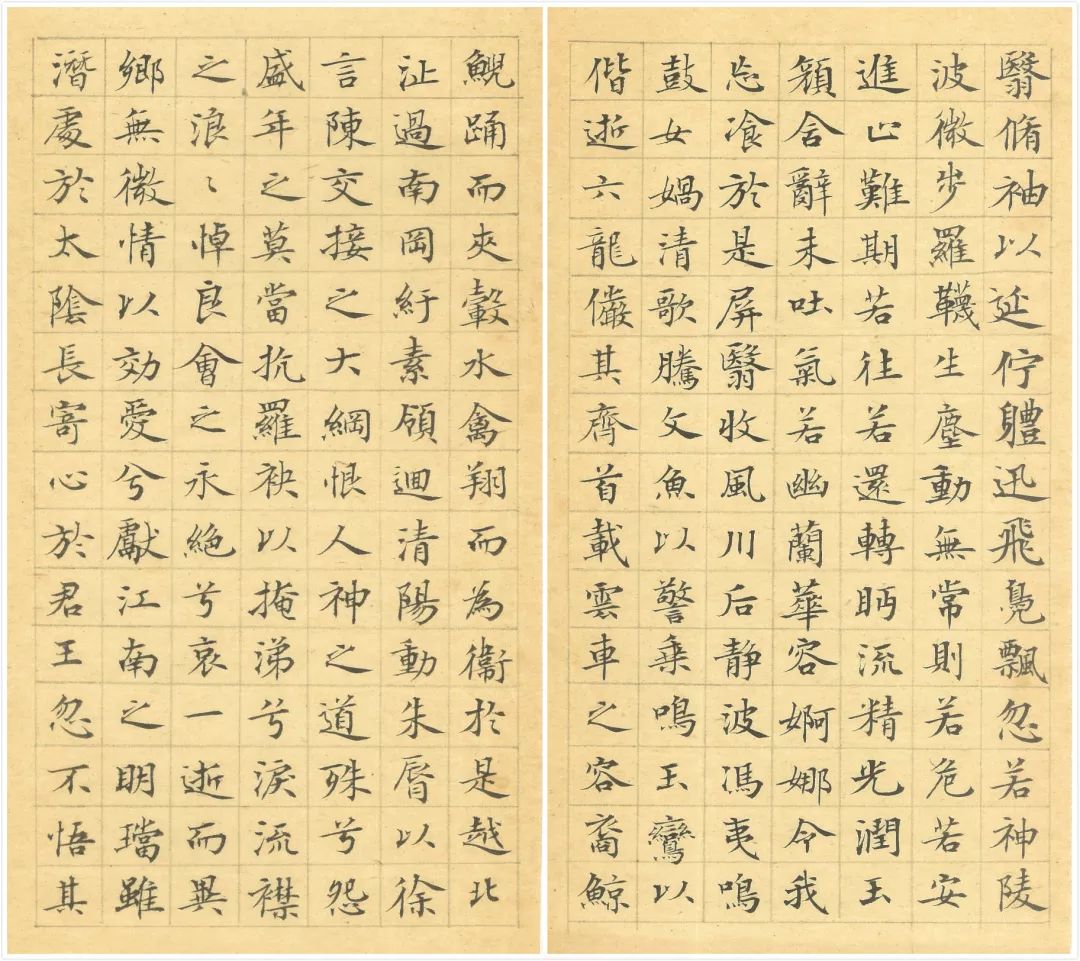 翳脩袖以延佇體迅飛鳧飄忽若神陵
波微步羅韈生塵動無常則若危若安
進止難期若往若還轉眄流精光潤玉
顏含辭未吐氣若幽蘭華容婀娜令我
忘飡於是屏翳收風川后靜波馮夷鳴
鼓女媧清歌騰文魚以警乘鳴玉鸞以
偕逝六龍儼其齊首載雲車之容裔鯨
鯢踊而夾轂水禽翔而為衞於是越北
沚過南岡紆素領迴清陽動朱脣以徐
言陳交接之大綱恨人神之道殊兮怨
盛年之莫當抗羅袂以掩涕兮淚流襟
之浪〻悼良會之永絕兮哀一逝而異
鄉無微情以効愛兮獻江南之明璫雖
潛處於太陰長寄心於君王忽不悟其